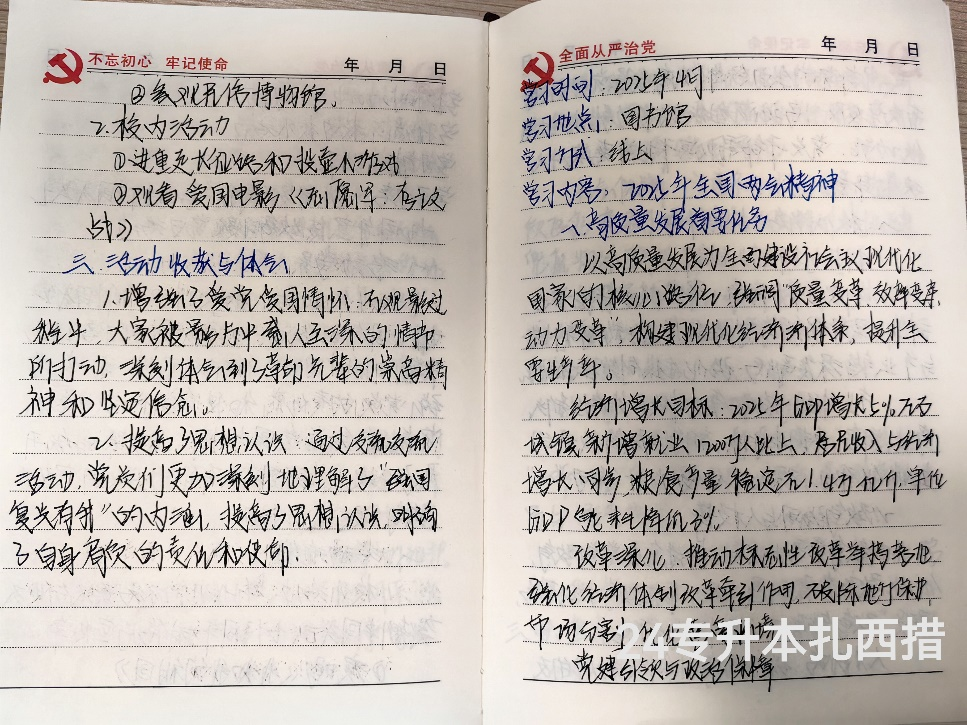 不忘初心 牢记使命
年 月 日
②参观革命博物馆。
2. 校内活动
①进重走长征路和投壶小活动
②观看爱国电影《志愿军：存亡之
战》
三、活动收获与体会
1. 增强了爱党爱国情怀：在观影过
程中，大家被影片中感人至深的情节
所打动，深刻体会到了革命先辈的崇高精
神和坚定信念。
2. 提高了思想认识：通过交流
活动，党员们更加深刻地理解了“强国
复兴有我”的内涵，提高了思想认识，明确
了自身肩负的责任和使命.
全面从严治党
年 月 日
学习时间：2025年4月
学习地点：图书馆
学习方式：线上
学习内容：2025年全国两会精神
一、高质量发展首要任务
以高质量发展为全面建设社会主义现代化
国家的核心路径，强调“质量变革 效率变革
动力变革”，构建现代化经济体系，提升全
要生产率。
经济增长目标：2025年GDP增长5%左右
城镇新增就业1200万人以上，居民收入与经济
增长同步，粮食产量稳定在1.4万亿斤，单位
GDP能耗降低3%。
改革深化：推动标志性改革举措落地
强化经济体制改革牵引作用，破除地方保护
市场分割
党建引领与政治保障
24专升本扎西措